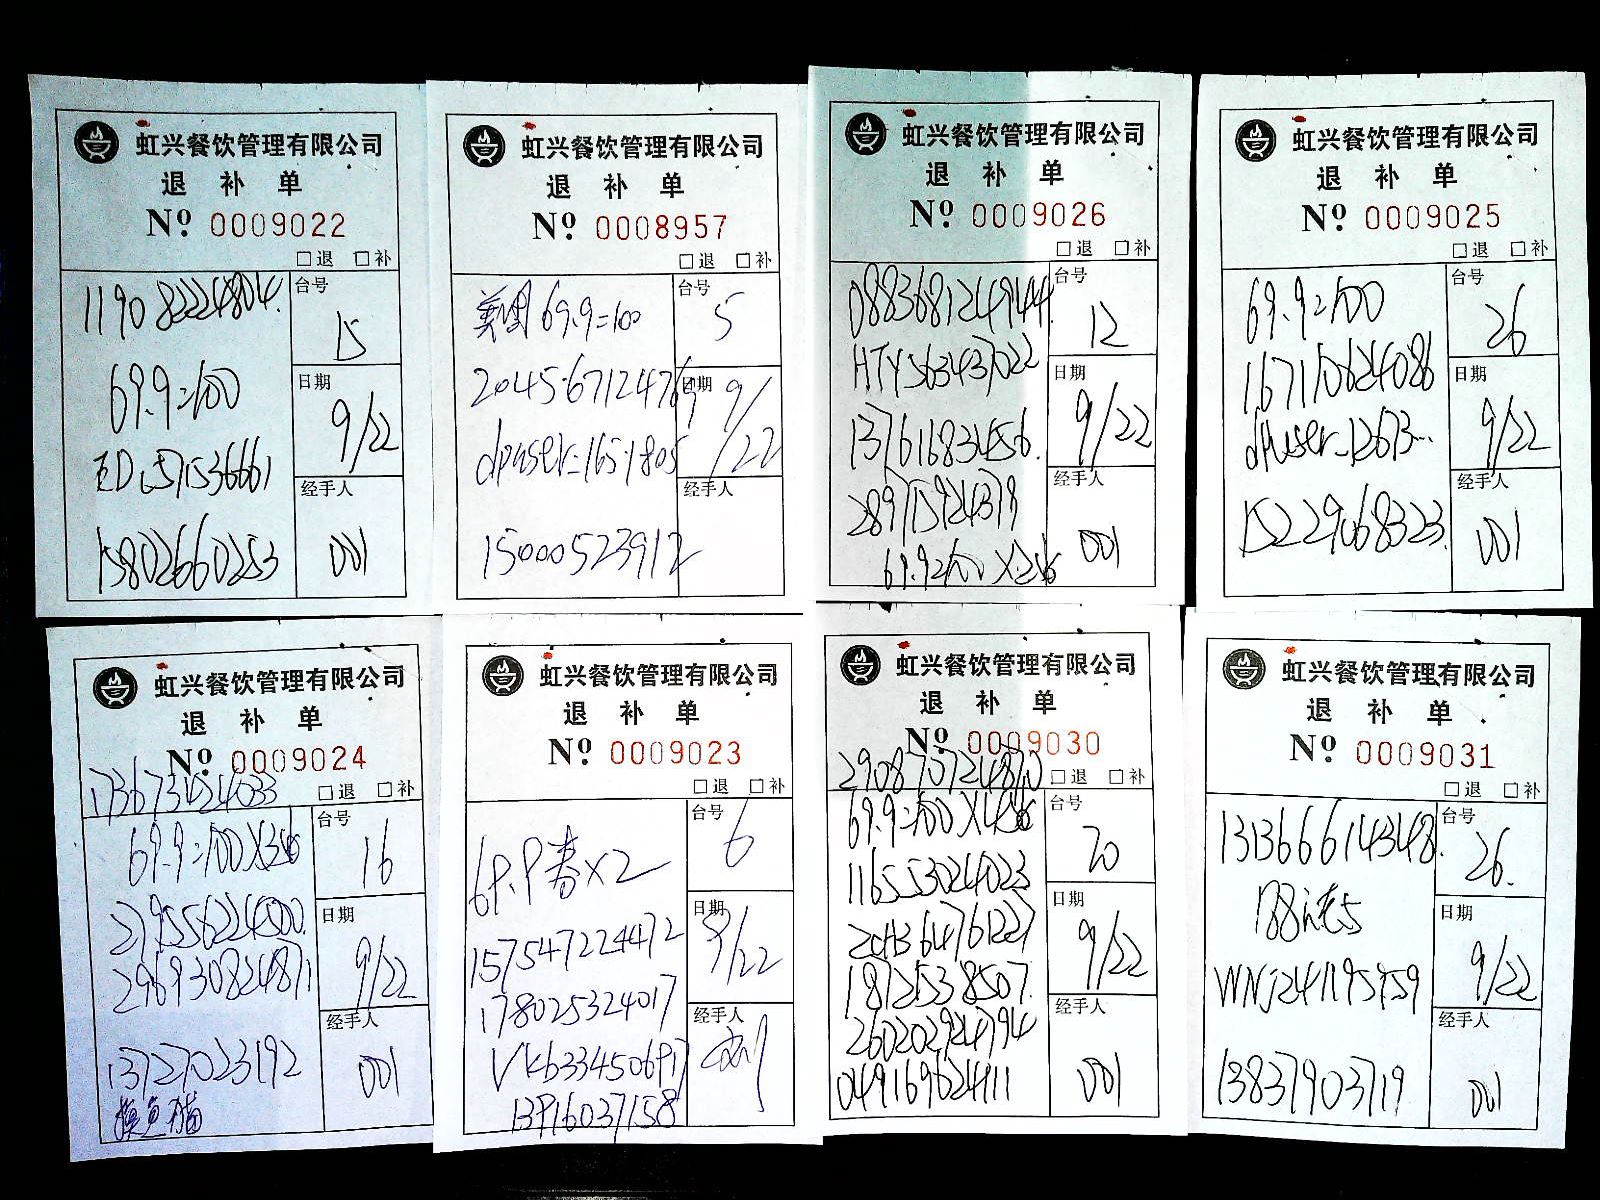 虹兴餐饮管理有限公司
退 补 单
Nº 0009022
□退 □补
119082224804.
台号
15
69.9=100
日期
9/22
经手人
15802660253
001
虹兴餐饮管理有限公司
退 补 单
Nº 0008957
□退 □补
美团69.9=100
台号
5
204567124769
日期
9/22
dpuser=165·1805
经手人
15000523912
虹兴餐饮管理有限公司
退 补 单
Nº 0009026
□退 □补
088368124944.
台号
12
HTY563437022
日期
13761683456.
9/22
289715924379
经手人
001
虹兴餐饮管理有限公司
退 补 单
Nº 0009025
□退 □补
69.9=100
台号
26
167110624086
日期
dpuser-12673...
9/22
经手人
15229068323.
001
虹兴餐饮管理有限公司
退 补 单
Nº 0009024
173673454033
□退 □补
台号
16
279556224500.
日期
296930824871
9/22
经手人
13727023192
001
摸鱼猫
虹兴餐饮管理有限公司
退 补 单
Nº 0009023
□退 □补
台号
6
69.9套×2
日期
9/22
157547224472
178025324017
经手人
Vkb334506917
13916037158
虹兴餐饮管理有限公司
退 补 单
Nº 0009030
290870724870
□退 □补
台号
70
116553024023
日期
ZCH364761227
9/22
18721538507.
260202924794
经手人
049169624111
001
虹兴餐饮管理有限公司
退 补 单
Nº 0009031
□退 □补
131366614348.
台号
26.
日期
WNJ241195959
9/22
经手人
13837903719
001